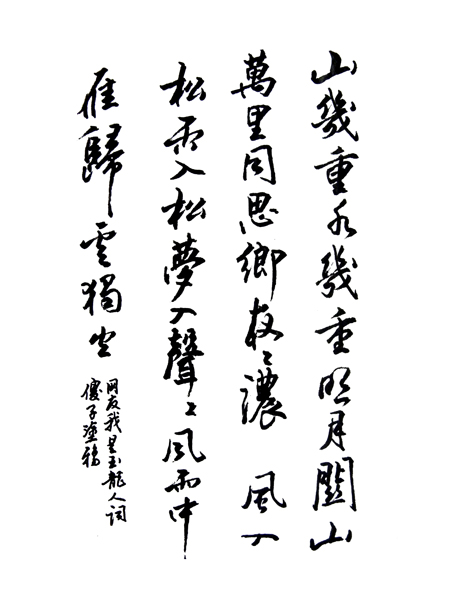 山幾重水幾重明月關山
萬里同思鄉夜〻濃 風入
松雨入松夢入聲〻風雨中
雁歸雲獨空
网友我是玉龍人詞
傻子塗鴉